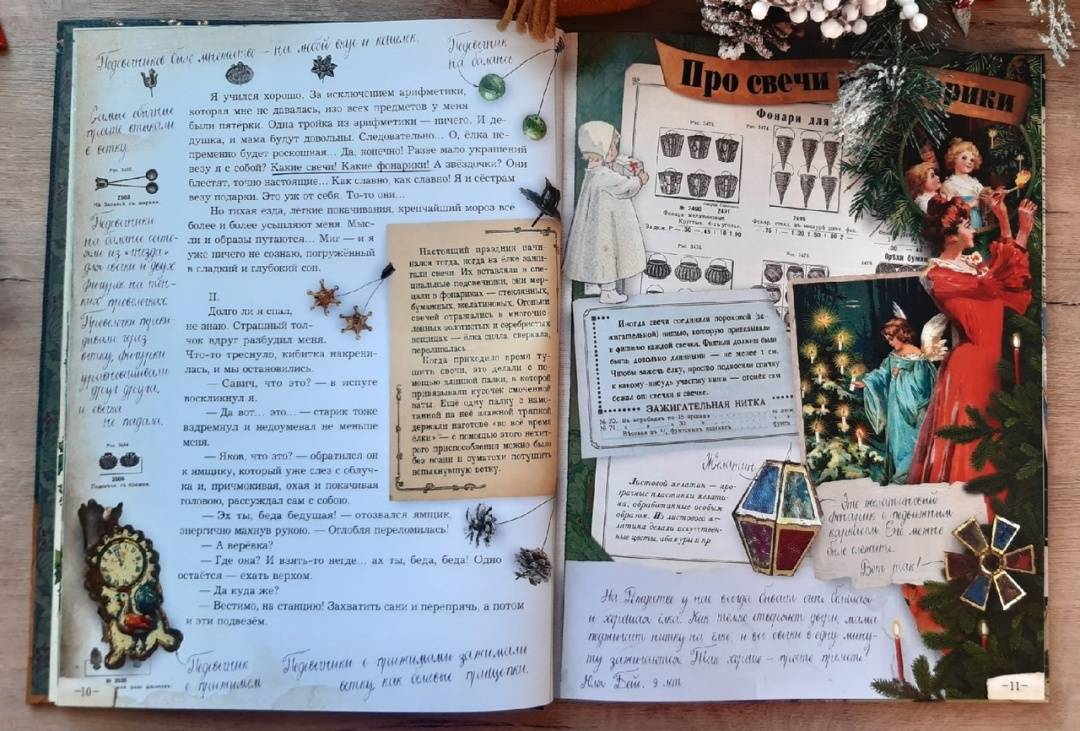 Подсвечников было множество – на любой вкус и кошелек.
Подсвечник
на балансе
Самые обычные
просто втыкали
в ветку.
Подсвечники
на балансе состо-
яли из «гнезда»
для свечки и двух
фигурок на тон-
ких проволочках.
Проволочки переки-
дывали через
ветку, фигурки
уравновешивали
друг друга,
и свечка
не падала.
Я учился хорошо. За исключением арифметики,
которая мне не давалась, изо всех предметов у меня
были пятёрки. Одна тройка из арифметики — ничего. И де-
душка, и мама будут довольны. Следовательно... О, ёлка не-
пременно будет роскошная... Да, конечно! Разве мало украшений
везу я с собой? Какие свечи! Какие фонарики! А звёздочки? Они
блестят, точно настоящие... Как славно, как славно! Я и сёстрам
везу подарки. Это уж от себя. То-то они...
Но тихая езда, легкие покачивания, крепчайший мороз всё
более и более усыпляют меня. Мыс-
ли и образы путаются... Миг — и я
уже ничего не сознаю, погружённый
в сладкий и глубокий сон.
II.
Долго ли я спал,
не знаю. Страшный тол-
чок вдруг разбудил меня.
Что-то треснуло, кибитка накрени-
лась, и мы остановились.
— Савич, что это? — в испуге
воскликнул я.
— Да вот... это... — старик тоже
вздремнул и недоумевал не меньше
меня.
— Яков, что это? — обратился он
к ямщику, который уже слез с облуч-
ка и, причмокивая, охая и покачивая
головою, рассуждал сам с собою.
— Эх ты, беда бедущая! — отозвался ямщик,
энергично махнув рукою. — Оглобля переломилась!
— А верёвка?
— Где она? И взять-то негде... ах ты, беда, беда! Одно
остаётся — ехать верхом.
— Да куда же?
— Вестимо, на станцию! Захватить сани и перепрячь, а потом
и эти подвезём.
Настоящий праздник начи-
нался тогда, когда на ёлке зажи-
гали свечи. Их вставляли в спе-
циальные подсвечники, они мер-
цали в фонариках — стеклянных,
бумажных, желатиновых. Огоньки
свечей отражались в многочис-
ленных золотистых и серебристых
вещицах — ёлка сияла, сверкала,
переливалась.
Когда приходило время ту-
шить свечи, это делали с по-
мощью длинной палки, к которой
привязывали кусочек смоченной
ваты. Ещё одну палку с намо-
танной на неё влажной тряпкой
держали наготове «во всё время
ёлки» — с помощью этого нехит-
рого приспособления можно было
без возни и суматохи потушить
вспыхнувшую ветку.
Подсвечник
с прижимом
Подсвечники с прижимами зажимали
ветку как бельевые прищепки.
—10—
Про свечи рики
Фонари для
№ 2490 2491
ЗАЖИГАТЕЛЬНАЯ НИТКА
Иногда свечи соединяли пороховой (за-
жигательной) нитью, которую привязывали
к фитилю каждой свечки. Фитили должны были
быть довольно длинными — не менее 1 см.
Чтобы зажечь ёлку, просто подносили спичку
к какому-нибудь участку нити — огонёк сам
бежал от свечки к свечке.
Желатин
Листовой желатин — про-
зрачные пластинки желати-
на, обработанные особым
образом. Из листового же-
латина делали искусствен-
ные цветы, абажуры и пр.
Это желатиновый
фонарик с подвижным
каркасом. Его можно
было сложить.
Вот так!
На Рождество у нас всегда бывает очень большая
и хорошая ёлка. Как только отворят двери, мама
подпалит нитку на ёлке, и все свечки в одну мину-
ту зажигаются. Так хорошо – просто прелесть!
9 лет
—11—